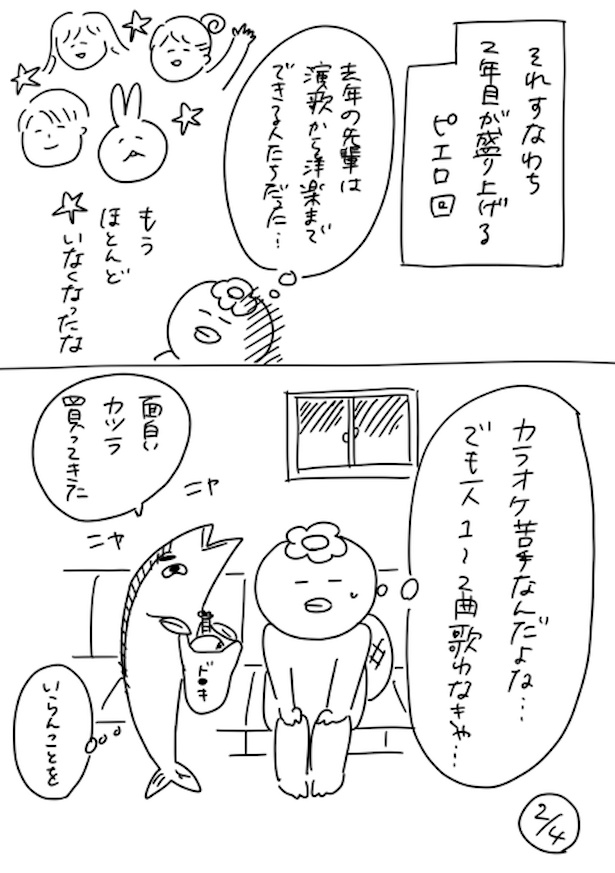 それすなわち
2年目が盛り上げる
ピエロ回
去年の先輩は
演歌から洋楽まで
できる人たちだった…
もう
ほとんど
いなくなったな
カラオケ苦手なんだよな…
でも一人1〜2曲歌わなきゃ…
面白い
カツラ
買ってきた
ニヤ
ニヤ
ドンキ
いらんことを
2/4